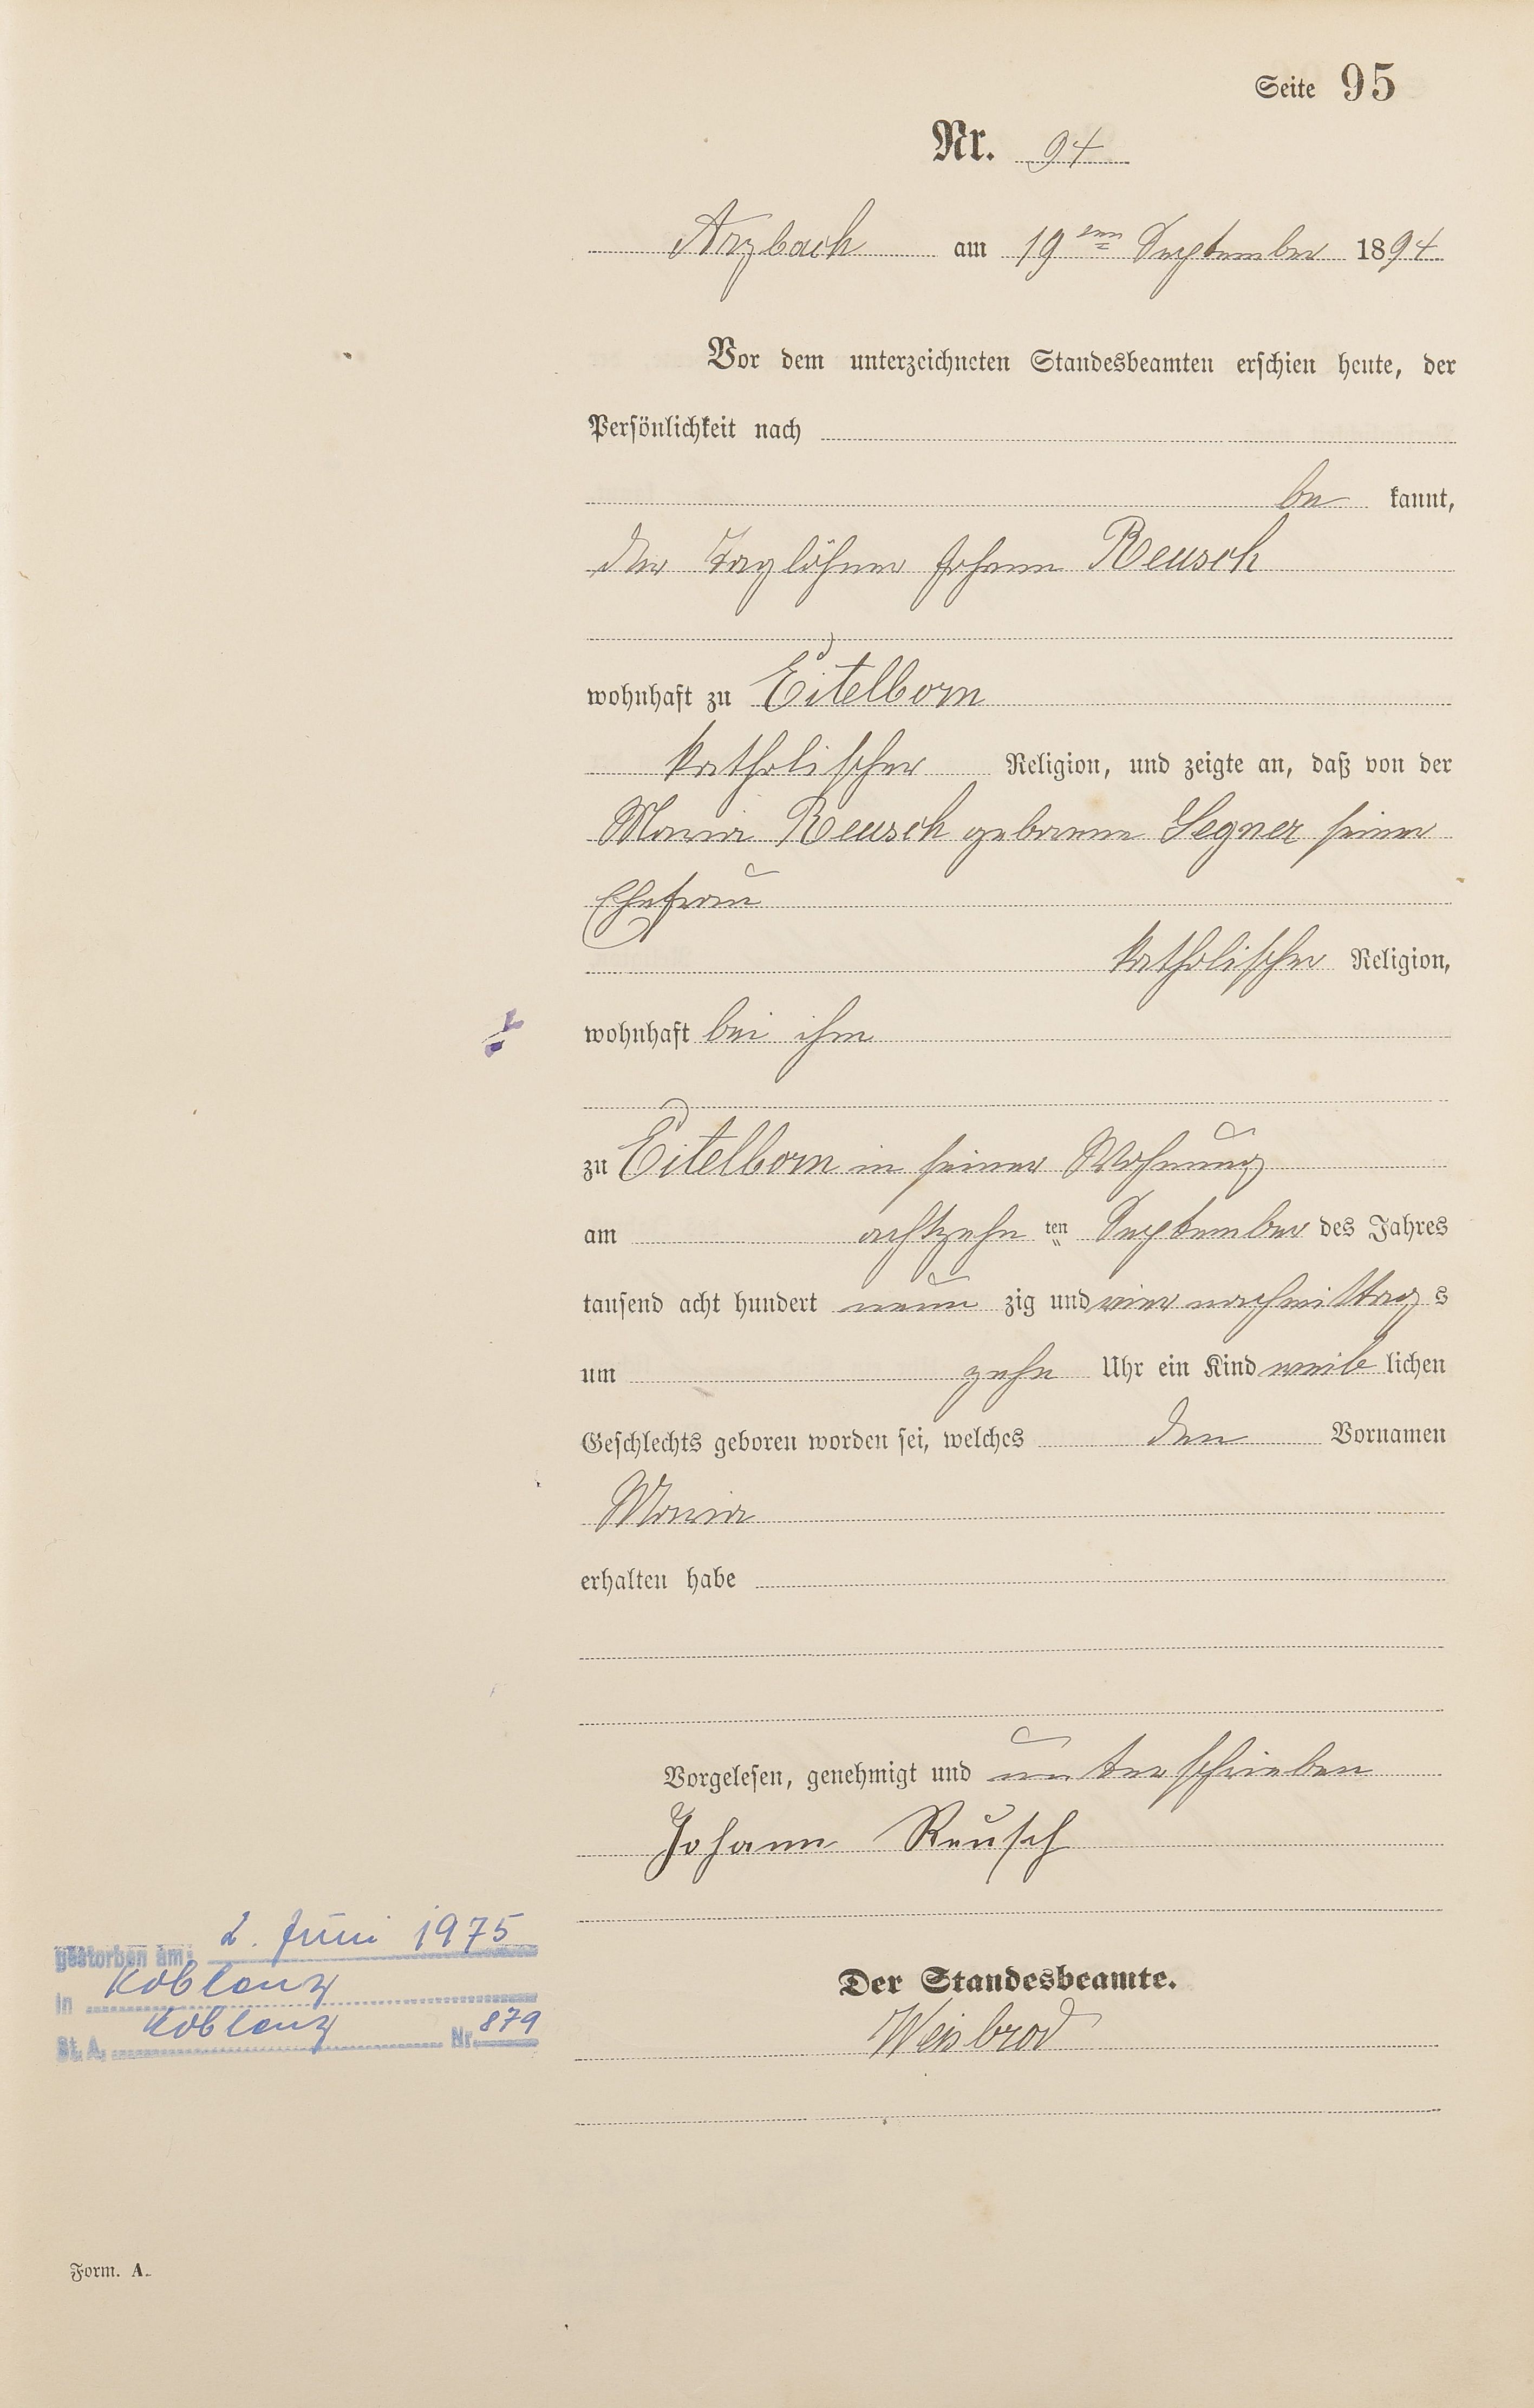 Seite 95
Nr. 94
Arzbach am 19ten September 1894
Vor dem unterzeichneten Standesbeamten erschien heute, der
Persönlichkeit nach
be kannt,
der Taglöhner Johann Reusch
wohnhaft zu Eitelborn
katholischer Religion, und zeigte an, daß von der
Maria Reusch geborene Segner seiner
Ehefrau
katholischer Religion,
wohnhaft bei ihm
zu Eitelborn in seiner Wohnung
am achtzehn ten September des Jahres
tausend acht hundert neun zig und vier nachmittag s
um zehn Uhr ein Kind weib lichen
Geschlechts geboren worden sei, welches den Vornamen
Maria
erhalten habe
Vorgelesen, genehmigt und unterschrieben
Johann Reusch
gestorben am: 2. Juni 1975
in Koblenz
St. A. Koblenz Nr. 879
Der Standesbeamte.
Weisbrod
Form. A.